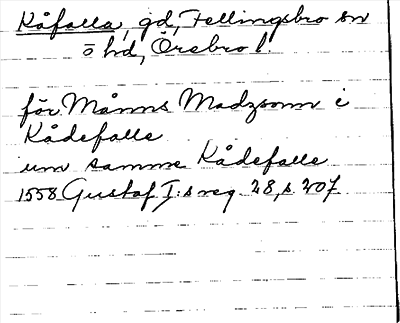 Kåfalla, gd, Fellingsbro sn
ö hd, Örebro l.
för Måns Madzsonn i
Kådefalle
um samme Kådefalle
1558 Gustaf I:s reg 28, s 207